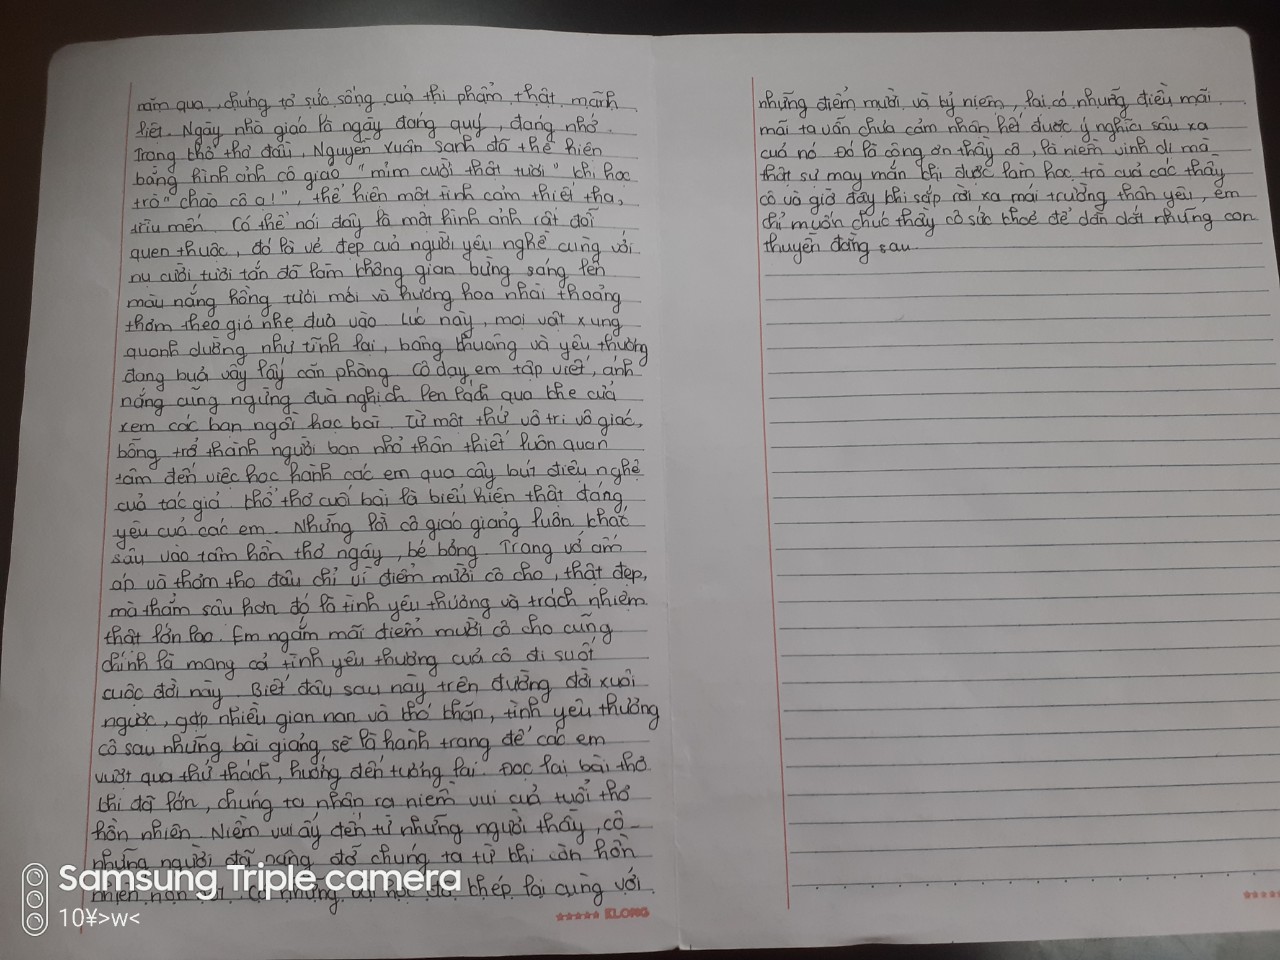 năm qua, chứng tỏ sức sống của thi phẩm thật mãnh
liệt. Ngày nhà giáo là ngày đáng quý, đáng nhớ.
Trong khổ thơ đầu, Nguyễn Xuân Sanh đã thể hiện
bằng hình ảnh cô giáo "mỉm cười thật tươi" khi học
trò "chào cô ạ!", thể hiện một tình cảm thiết tha,
trìu mến. Có thể nói đây là một hình ảnh rất đỗi
quen thuộc, đó là vẻ đẹp của người yêu nghề cùng với
nụ cười tươi tắn đã làm không gian bừng sáng lên
màu nắng hồng tươi mới và hương hoa nhài thoảng
thơm theo gió nhẹ đưa vào. Lúc này, mọi vật xung
quanh dường như tĩnh lại, bâng khuâng và yêu thương
đang bủa vây lấy căn phòng. Cô dạy em tập viết, ánh
nắng cũng ngừng đùa nghịch len lách qua khe cửa
xem các bạn ngồi học bài. Từ một thứ vô tri vô giác,
bỗng trở thành người bạn nhỏ thân thiết luôn quan
tâm đến việc học hành các em qua cây bút điêu nghệ
của tác giả. Khổ thơ cuối bài là biểu hiện thật đáng
yêu của các em. Những lời cô giáo giảng luôn khắc
sâu vào tâm hồn thơ ngây, bé bỏng. Trang vở ấm
áp và thơm tho đâu chỉ vì điểm mười cô cho, thật đẹp,
mà thẳm sâu hơn đó là tình yêu thương và trách nhiệm
thật lớn lao. Em ngắm mãi điểm mười cô cho cũng
chính là mang cả tình yêu thương của cô đi suốt
cuộc đời này. Biết đâu sau này trên đường đời xuôi
ngược, gặp nhiều gian nan và khó khăn, tình yêu thương
cô sau những bài giảng sẽ là hành trang để các em
vượt qua thử thách, hướng đến tương lai. Đọc lại bài thơ
khi đã lớn, chúng ta nhận ra niềm vui của tuổi thơ
hồn nhiên. Niềm vui ấy đến từ những người thầy, cô -
những người đã nâng đỡ chúng ta từ khi còn hồn
nhiên Có những bài học đã khép lại cùng với
những điểm mười và kỷ niệm, lại có những điều mãi
mãi ta vẫn chưa cảm nhận hết được ý nghĩa sâu xa
của nó. Đó là công ơn thầy cô, là niềm vinh dự mà
thật sự may mắn khi được làm học trò của các thầy
cô và giờ đây khi sắp rời xa mái trường thân yêu, em
chỉ muốn chúc thầy cô sức khoẻ để dẫn dắt những con
thuyền đằng sau.
KLONG
Samsung Triple camera
10¥>w<